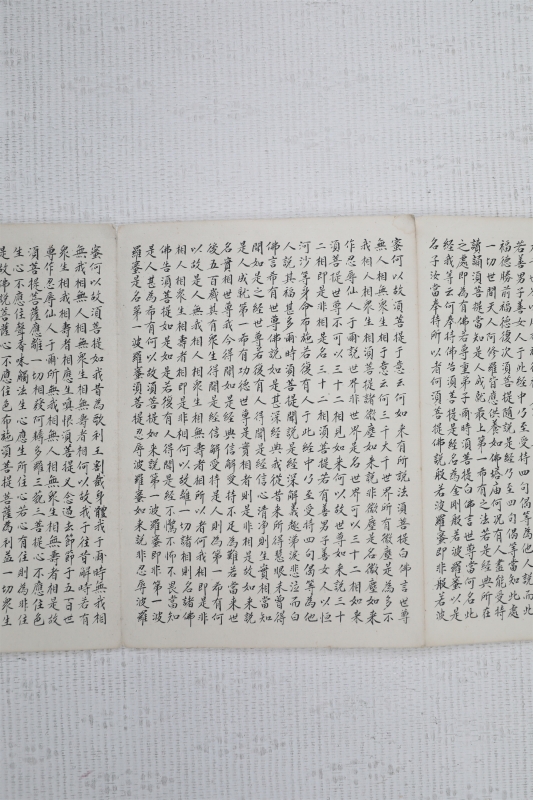 若善男子善女人于此經中乃至受持四句偈等為他人說而此
福德勝前福德復次須菩提隨說是經乃至四句偈等當知此處
一切世間天人阿修羅皆應供養如佛塔廟何況有人盡能受持
讀誦須菩提當知是人成就最上第一希有之法若是經典所在
之處即為有佛若尊重弟子爾時須菩提白佛言世尊當何名此
經我等云何奉持佛告須菩提是經名為金剛般若波羅蜜以是
名子汝當奉持所以者何須菩提佛說般若波羅蜜即非般若波
蜜何以故須菩提于意云何如来有所說法須菩提白佛言世尊
無人相無衆生相于意云何三千大千世界所有微塵是為多不
我相人相衆生相須菩提諸微塵如来說非微塵是名微塵如来
作忍辱仙人于爾說世界非世界是名世界可以三十二相如来
須菩提世尊不可以三十二相見如来何以故世尊如来說三十
二相即是非相是名三十二相須菩提若有善男子善女人以恒
河沙等身命布施若復有人于此經中乃至受持四句偈等為他
人說其福甚多爾時須菩提聞說是經深解義趣涕淚悲泣而白
佛言希有世尊佛說如是甚深經典我從昔来所得慧眼未曾得
聞如是之經世尊若復有人得聞是經信心清淨則生實相當知
是人成就第一希有功德世尊是實相者則是非相是故如来說
名實相世尊我今得聞如是經典信解受持不足為難若當来世
後五百歲其有衆生得聞是經信解受持是人則為第一希有何
以故是人無我相人相衆生相無壽者相所以者何我相即是非
相人相衆生相壽者相即是非相何以故離一切諸相則名諸佛
佛告須菩提如是如是若復有人得聞是經不驚不怖不畏當知
是人甚為希有何以故須菩提如来說第一波羅蜜即非第一波
羅蜜是名第一波羅蜜須菩提忍辱波羅蜜如来說非忍辱波羅
蜜何以故須菩提如我昔為歌利王割截身體我于爾時無我相
無我相無人相無衆生相無壽者相何以故我于往昔解時若有
衆生相我相壽者相應生嗔恨須菩提又念過去節節于五百世
尊作忍辱仙人于爾所無我相無人相無衆生相無壽者相是故
須菩提菩薩應離一切相發阿耨多羅三藐三菩提心不應住色
生心不應住聲香味觸法生心應生所住心若心有住則為非住
是故佛說菩薩心不應住色布施須菩提菩薩為利益一切衆生